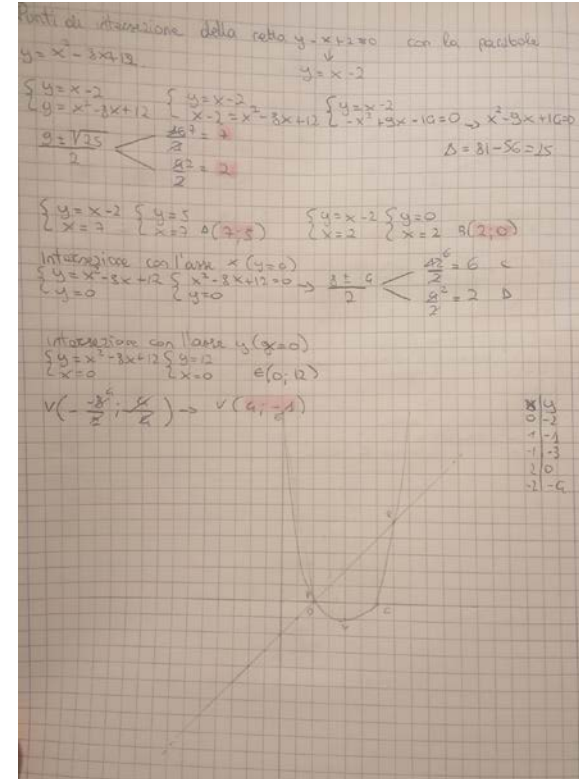 Punti di intersezione della retta y-x+2=0 con la parabola
y = x² - 8x+12
y = x - 2
{ y = x-2 { y = x-2 { y = x-2
{ y = x² - 8x + 12 { x-2 = x² - 8x + 12 { -x² + 9x - 14 = 0 → x² - 9x + 14 = 0
Δ = 81 - 56 = 25
9 ± √25 / 2
14 / 2 = 7
4 / 2 = 2
{ y = x-2 { y = 5 { y = x-2 { y = 0
{ x = 7 { x = 7 A(7;5) { x = 2 { x = 2 B(2;0)
Intersezione con l'asse x (y=0)
{ y = x² - 8x + 12 { x² - 8x + 12 = 0 → 8 ± 4 / 2
{ y = 0 { y = 0
12 / 2 = 6 C
4 / 2 = 2 D
intersezione con l'asse y (x=0)
{ y = x² - 8x + 12 { y = 12
{ x = 0 { x = 0 E(0; 12)
x | y
0 | -2
1 | -1
-1 | -3
2 | 0
-2 | -4
C
V